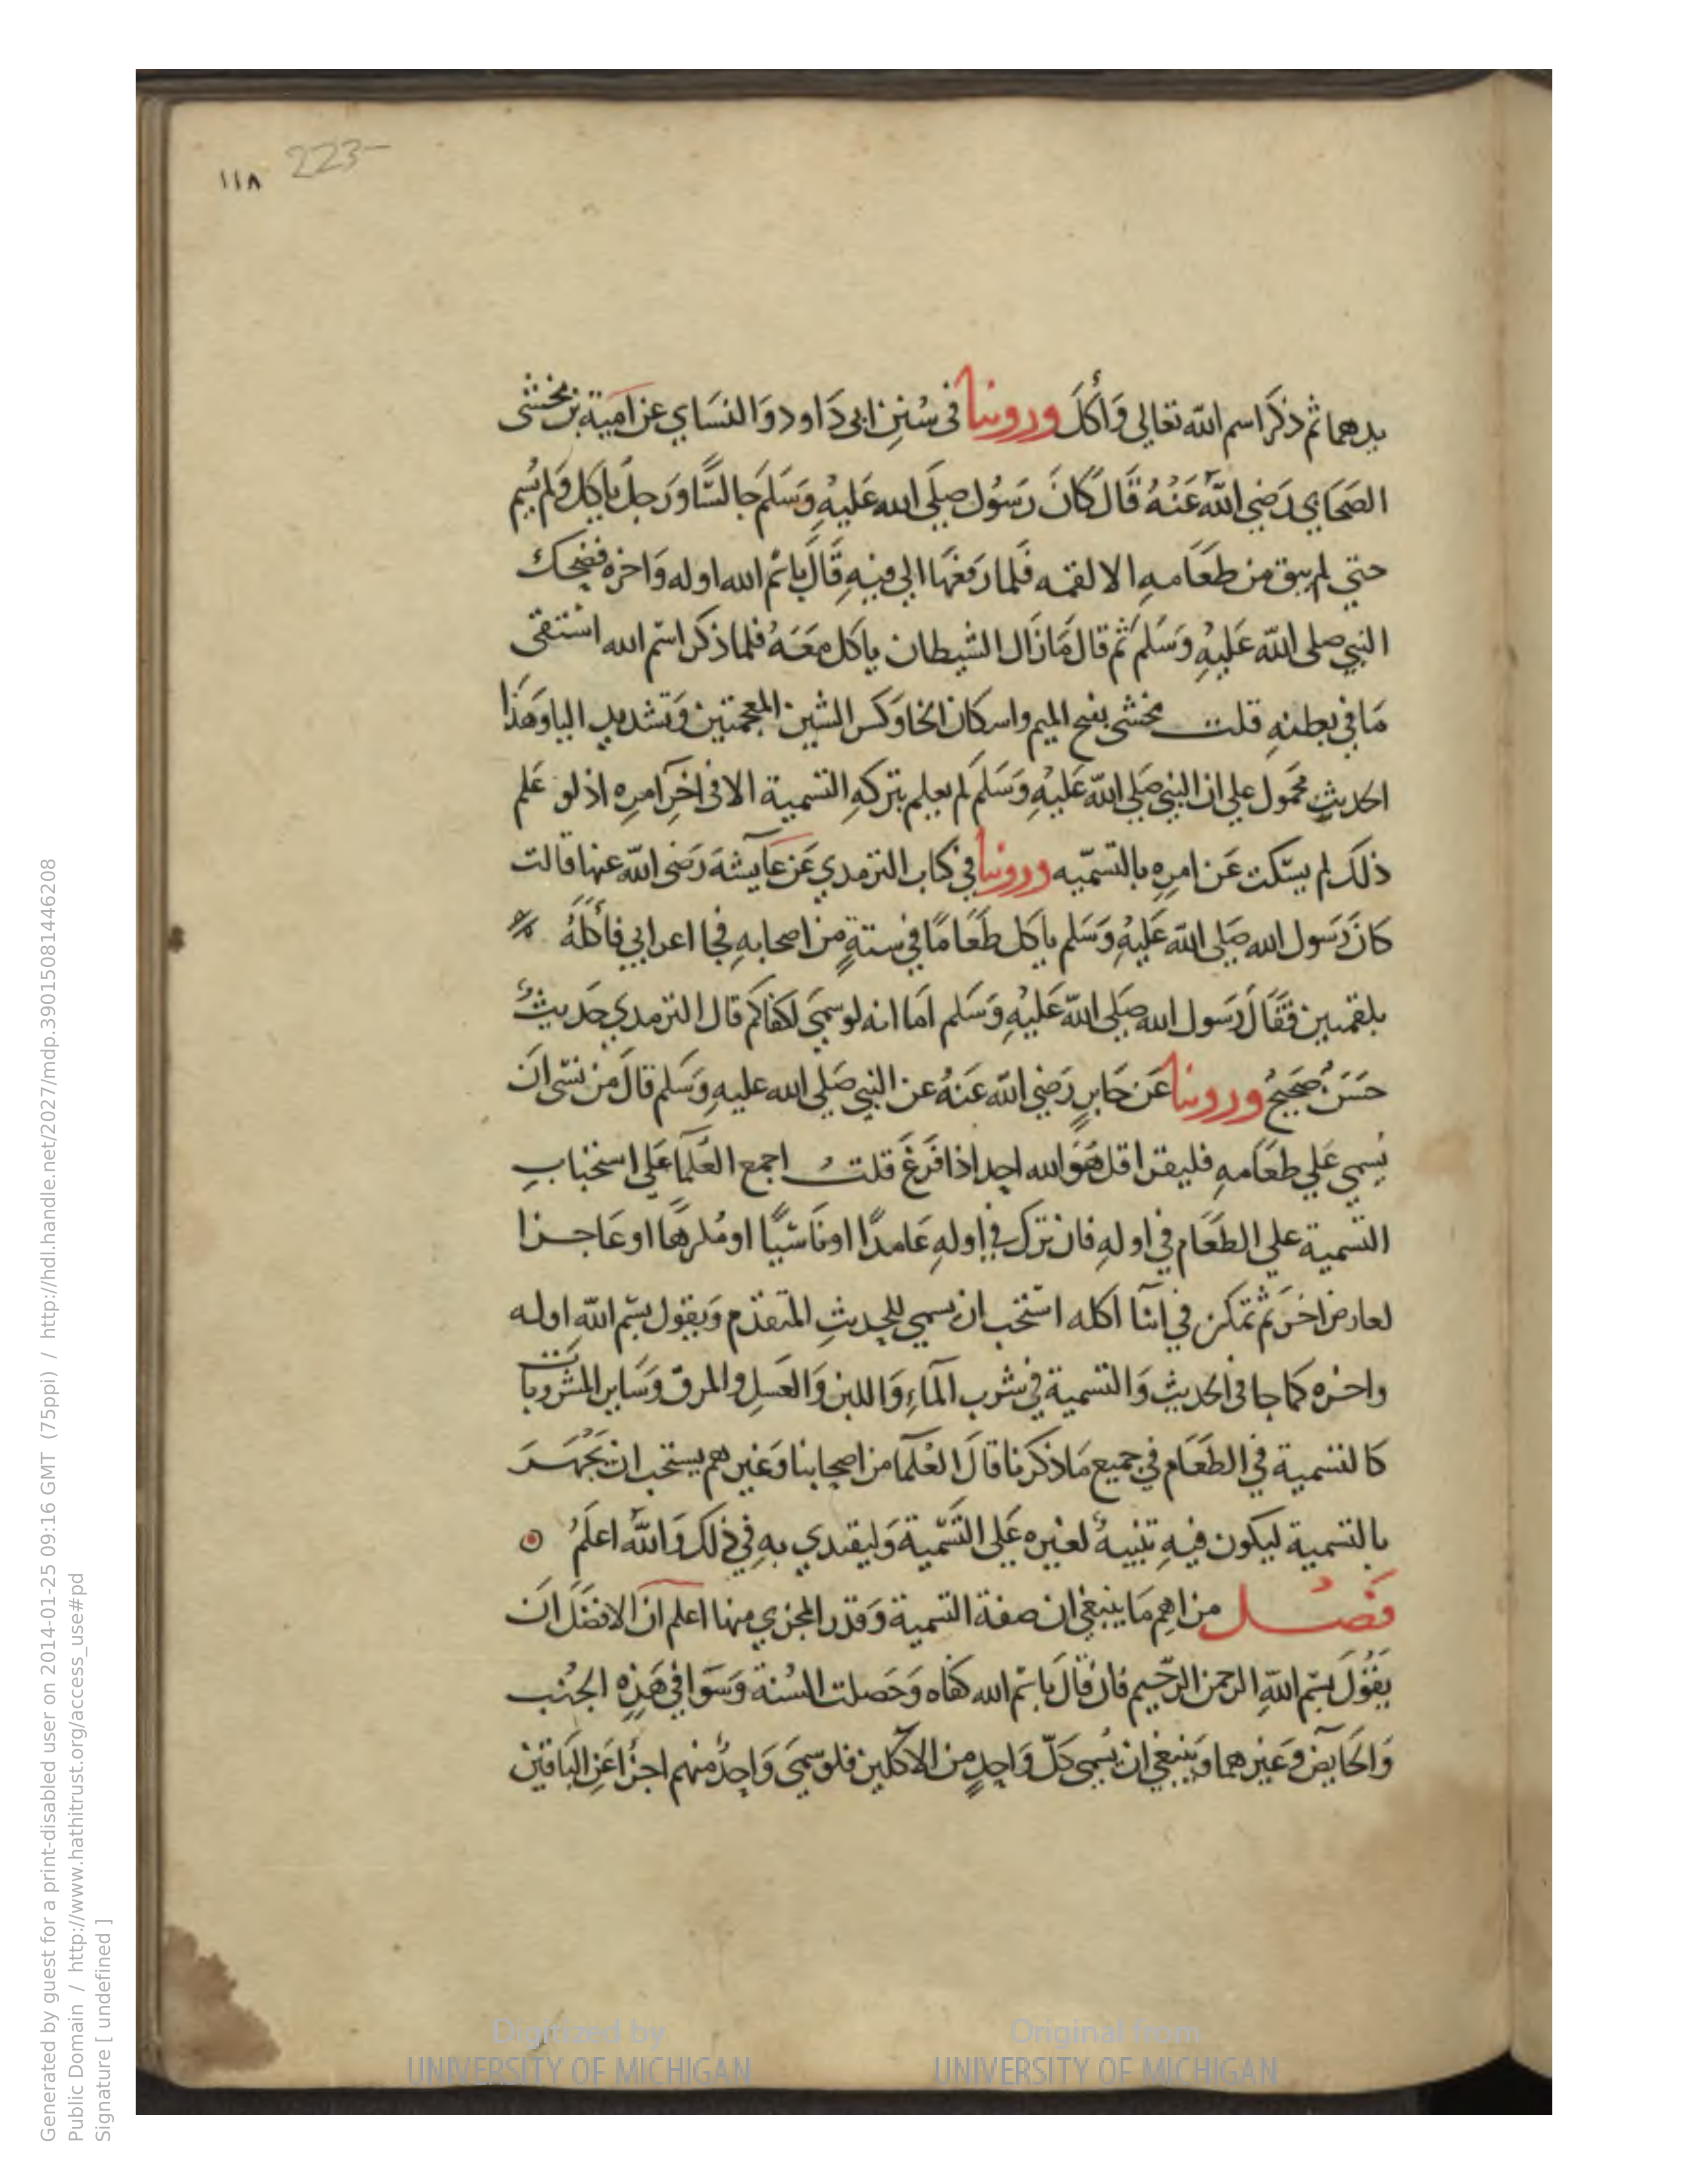 ١١٨ 223-
يدهما ثم ذكر اسم الله تعالى وَأكَلَ وروينا في سُنن ابى دَاود وَالنسَاي عن امية بن مخشى
الصحَابي رَضي اللهُ عَنْهُ قَالَ كانَ رَسُول صلى الله عَليْهِ وَسَلم جالسًا وَرَجلٌ ياكل وَلم يُسم
حتي لم يبق من طعَامهِ الا لقمه فلما رَفعَها الي فيهِ قَالَ باسْم الله اوله وَاخره فضحِك
النبي صلى الله عَليْهِ وَسَلم ثم قال مَا زَال الشيطان ياكل مَعَهُ فلما ذكر اسْم الله استقى
مَا في بطنهِ قلت مخشى بفتح الميم واسكان الخا وَكسر الشين المعجمتين وَتشديد اليا وَهَذا
الحديث محمول علي ان النبي صَلي الله عَليْهِ وَسَلم لم يعلم بتركهِ التسمية الا في اخر امرِه اذ لو عَلم
ذلك لم يسكت عَن امرِه بالتسميه وروينا في كتاب الترمدي عَن عَايشَة رَضى الله عنها قالت
كانَ رَسول الله صَلى الله عَليْهِ وَسَلم ياكل طعَامًا في ستةٍ من اصحابهِ فجا اعرابي فأكلَهُ
بلقمتين فقَالَ رَسول الله صَلى الله عَليْهِ وَسَلم امَا انه لو سمي لكفاكم قال الترمدي حَديثٌ
حَسَنٌ صَحيحٌ وروينا عَن جَابرٍ رَضي الله عَنهُ عن النبي صَلى الله عليهِ وَسَلم قالَ من نسى ان
يُسمي عَلي طعَامهِ فليقرا قل هُوَ الله احد اذا فَرَغ قلت اجمع العُلمَا عَلى استحباب
التسمية على الطعَام في اولهِ فان ترك في اولهِ عَامدًا او نَاسيًا او مُكرهًا او عَاجزا
لعارض اخَر ثم تمكن في اثنا اكله استحَب ان يسمي للحديث المتقدم وَيقول بسْم الله اوله
واخره كما جا في الحديث وَالتسمية في شرب المآء وَاللبن وَالعسَل والمرق وَسَاير المشروبات
كالتسمية في الطعَام في جميع مَا ذكرنا قالَ العُلمآ من اصحابنا وَغيرهم يستحَب ان يَجْهَر
بالتسمية ليكون فيهِ تنبيهٌ لغيره عَلى التسْمية وَليقتدي بهِ في ذلك وَالله اعلَمُ
فصل من اهم مَا ينبغي ان صفة التسمية وَقدر المجزي منها اعلم ان الافضَل ان
يَقُولَ بسْم اللهِ الرحمن الرحيم فان قالَ باسْم الله كفاه وَحَصلت السُنة وَسَوا في هَذِهِ الجُنب
وَالحَايض وَغيرهما وَينبغي ان يُسمي كلّ وَاحِدٍ من الاكلين فلو سمَى وَاحِدٌ منهم اجزا عَن البَاقين
Generated by guest for a print-disabled user on 2014-01-25 09:16 GMT (75ppi) / http://hdl.handle.net/2027/mdp.39015081446208
Public Domain / http://www.hathitrust.org/access_use#pd
Signature [ undefined ]
Digitized by
UNIVERSITY OF MICHIGAN
Original from
UNIVERSITY OF MICHIGAN